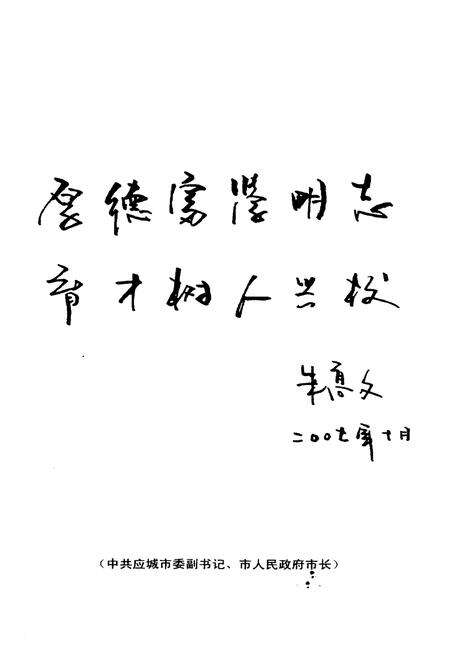 厚德崇学明志
育才树人兴校
朱高文
二00七年十月
（中共应城市委副书记、市人民政府市长）